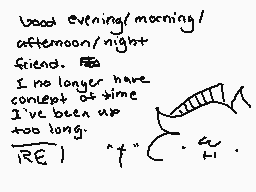 Good evening/morning/
afternoon/night
friend.
I no longer have
concept of time
I've been up
too long.
RE